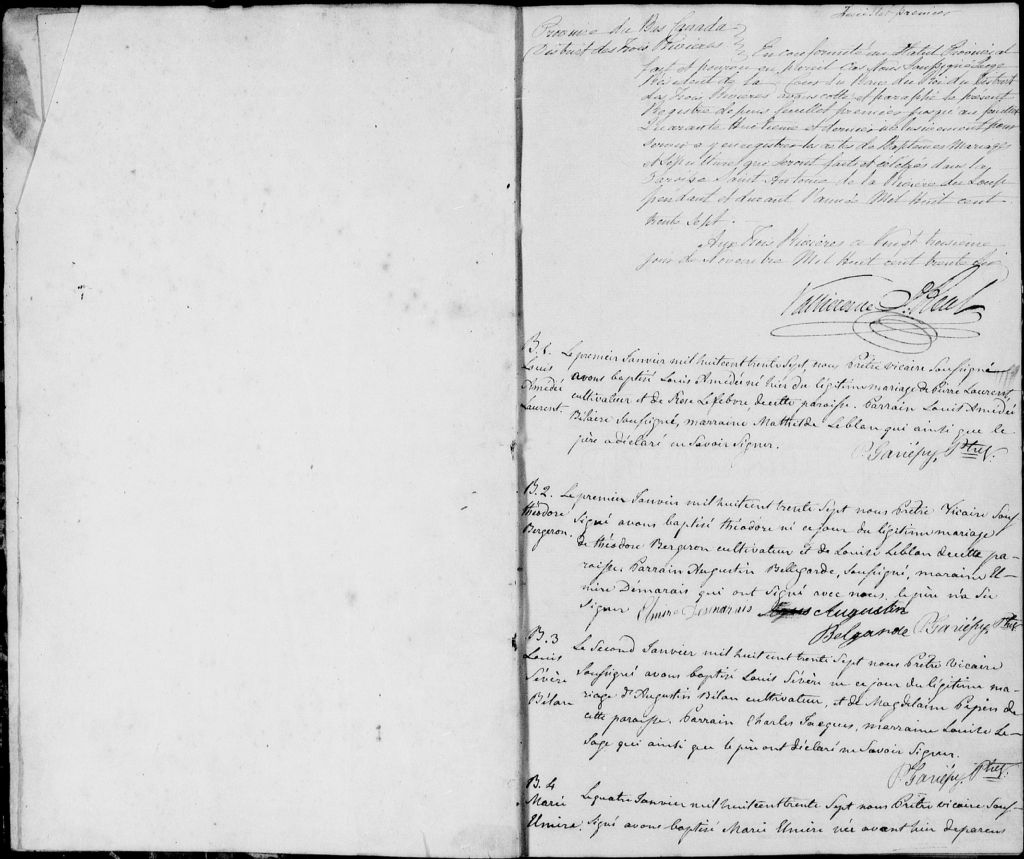 Feuillet premier
Province du Bas Canada
District des Trois Rivières } En conformité au Statut Provincial
fait et pourvu en pareil cas Nous Soussigné Juge
Résident de la Cour du Banc du Roi du District
des Trois Rivières avons cotté et paraphé le présent
Registre depuis feuillet premier jusqu'au feuillet
Quarante Huitieme et dernier inclusivement pour
servir à y enregistrer les actes de Baptêmes Mariages
et Sepultures qui seront faits et célébrés dans la
Paroisse Saint Antoine de la Rivière du Loup
pendant et durant l'année Mil huit cent
trente Sept.
Aux Trois Rivières ce Vingt troisieme
jour de Novembre Mil huit cent trente Six
Vallieres de St. Réal
B. 1.
Louis
Amédé
Laurent
Le premier Janvier mil huit cent trente Sept, nous Prêtre vicaire Soussigné
avons baptisé Louis Amédé né hier du légitime mariage de Pierre Laurent,
cultivateur et de Rose Lefebvre, de cette paroisse. Parrain Louis Amédé
Bélaire Soussigné, marraine Mathilde Leblan qui ainsi que le
père a déclaré ne Savoir Signer.
P. Gariépy, Ptre.
B. 2.
théodore
Bergeron.
Le premier Janvier mil huit cent trente Sept nous Prêtre Vicaire Sous-
Signé avons baptisé théodore né ce jour du légitime mariage
de théodore Bergeron cultivateur et de Louise Leblan de cette pa-
roisse. Parrain Augustin Bellegarde, Soussigné, maraine El-
mire Démarais qui ont Signé avec nous, le père n'a Su
Signer Elmire Desmarais Augusten
Belgarde P. Gariépy, Ptre
B. 3
Louis
Sévère
Bélan
Le Second Janvier mil huit cent trente Sept nous Prêtre Vicaire
Soussigné avons baptisé Louis Sévère né ce jour du légitime ma-
riage d'Augustin Bélan cultivateur, et de Magdelaine Pepin de
cette paroisse. Parrain Charles Jacques, marraine Louise Le-
Sage qui ainsi que le père ont déclaré ne Savoir Signer.
P. Gariépy, Ptre.
B. 4
Marie
Elmire.
Le quatre Janvier mil huit cent trente Sept nous Prêtre vicaire Sous-
Signé avons baptisé Marie Elmire née avant hier de parens